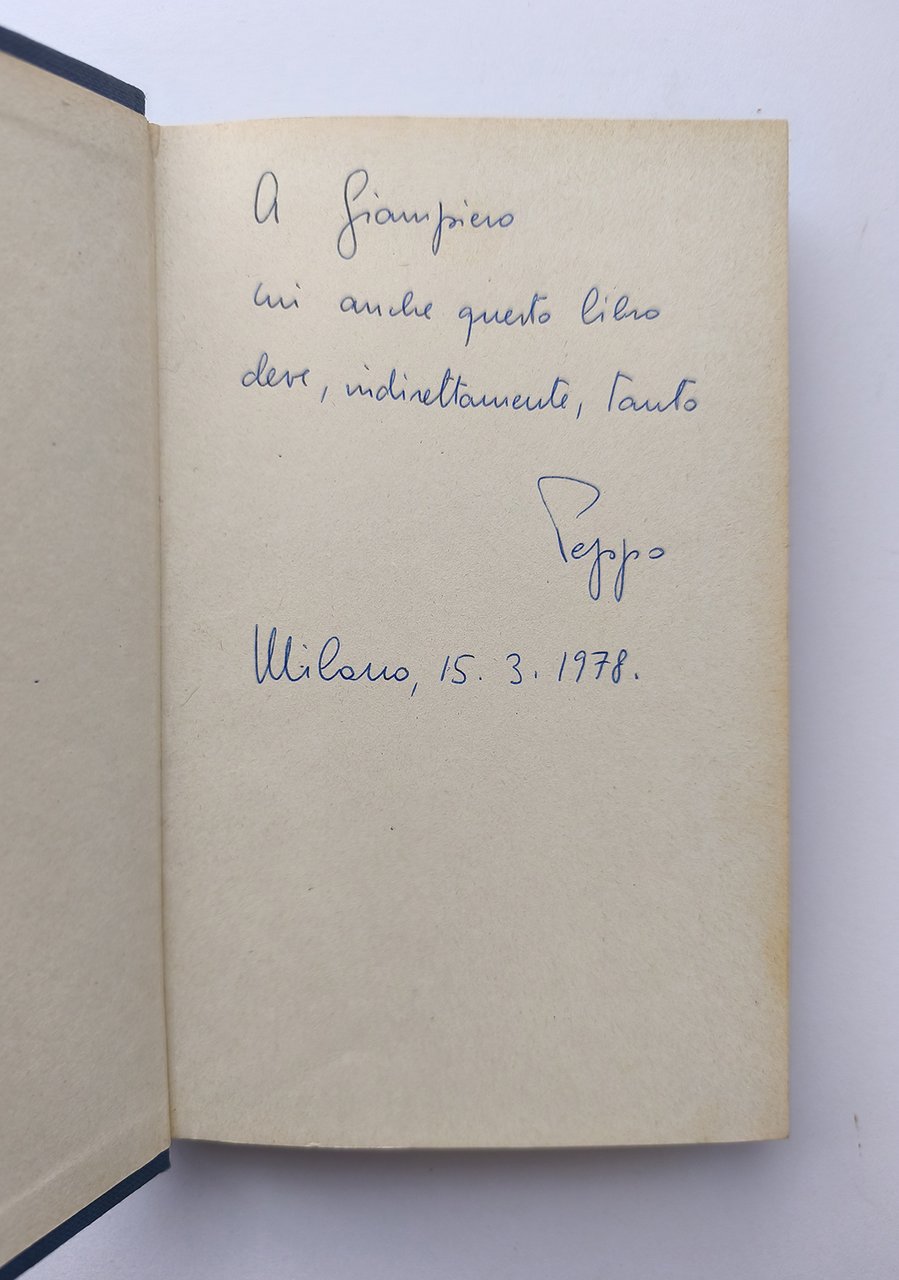 A Giampiero
cui anche questo libro
deve, indirettamente, tanto
Peppo
Milano, 15.3.1978.